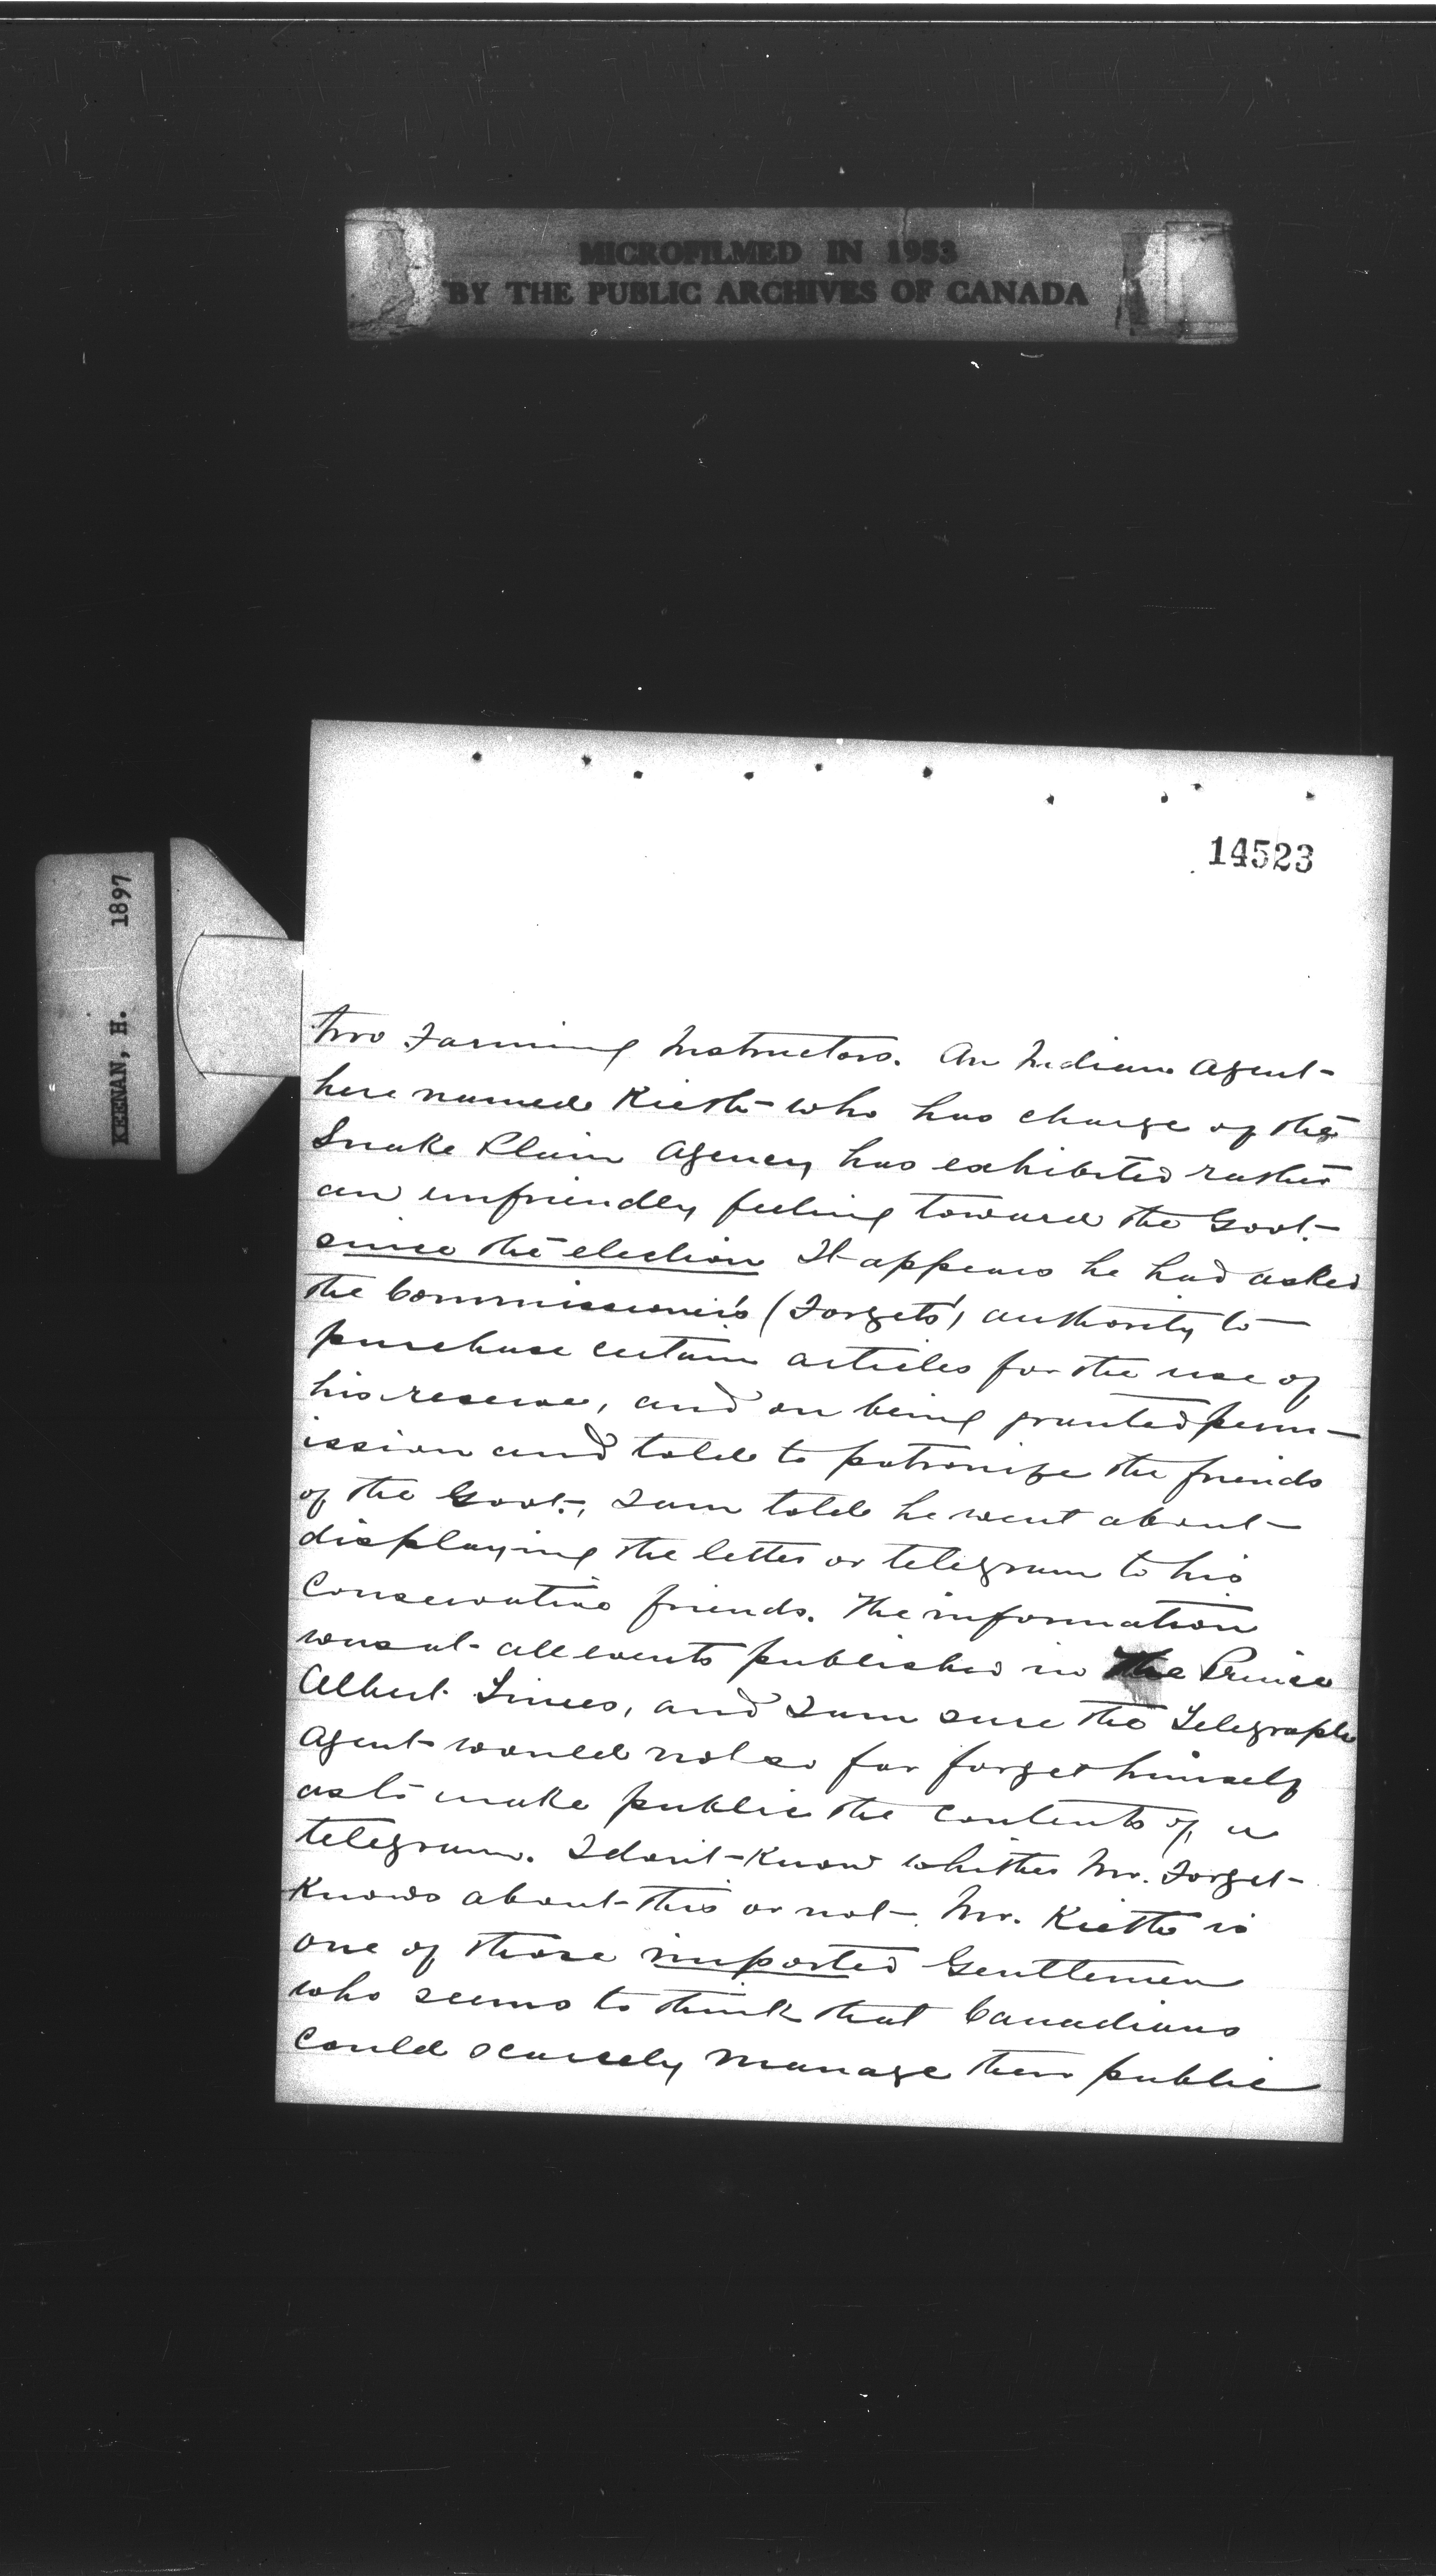 MICROFILMED IN 1953
BY THE PUBLIC ARCHIVES OF CANADA
KEENAN, H. 1897
14523
two Farming Instructors. An Indian Agent
here named Kieth who has charge of the
Snake Plain Agency has exhibited rather
an unfriendly feeling toward the Govt.
since the election It appears he had asked
the Commissioner's (Forget's) authority to
purchase certain articles for the use of
his reserve, and on being granted perm-
ission and told to patronize the friends
of the Govt., I am told he went about
displaying the letter or telegram to his
Conservative friends. The information
was at all events published in the Prince
Albert Times, and I am sure the Telegraph
Agent would not so far forget himself
as to make public the contents of a
telegram. I don't know whether Mr. Forget
knows about this or not. Mr. Kieth is
one of those imported Gentlemen
who seems to think that Canadians
could scarcely manage their public